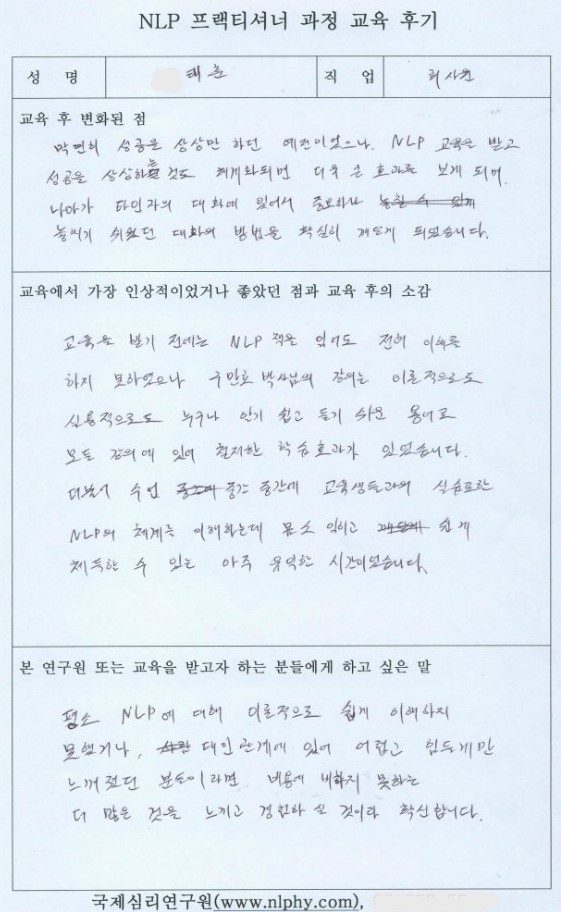 NLP 프랙티셔너 과정 교육 후기
성 명 태훈 직 업 회사원
교육 후 변화된 점
막연히 성공을 상상만 하던 예전이었으나, NLP 교육을 받고
성공을 상상하는 것도 체계화되면 더욱 큰 효과를 보게 되며,
나아가 타인과의 대화에 있어서 중요하나 놓칠 수 있게
놓치기 쉬웠던 대화의 방법을 확실히 깨닫게 되었습니다.
교육에서 가장 인상적이었거나 좋았던 점과 교육 후의 소감
교육을 받기 전에는 NLP 책을 읽어도 전혀 이해를
하지 못하였으나 구만호 박사님의 강의는 이론적으로도
실용적으로도 누구나 알기 쉽고 듣기 쉬운 용어로
모든 강의에 있어 철저한 학습효과가 있었습니다.
더불어 수업 중간 중간에 교육생들과의 실습또한
NLP의 체계를 이해하는데 몸소 익히고 쉽게
체득할 수 있는 아주 유익한 시간이었습니다.
본 연구원 또는 교육을 받고자 하는 분들에게 하고 싶은 말
평소 NLP에 대해 이론적으로 쉽게 이해하지
못했거나, 사람 대인관계에 있어 어렵고 힘들게만
느껴졌던 분들이라면 비용에 비하지 못하는
더 많은 것을 느끼고 경험하실 것이라 확신합니다.
국제심리연구원(www.nlphy.com),